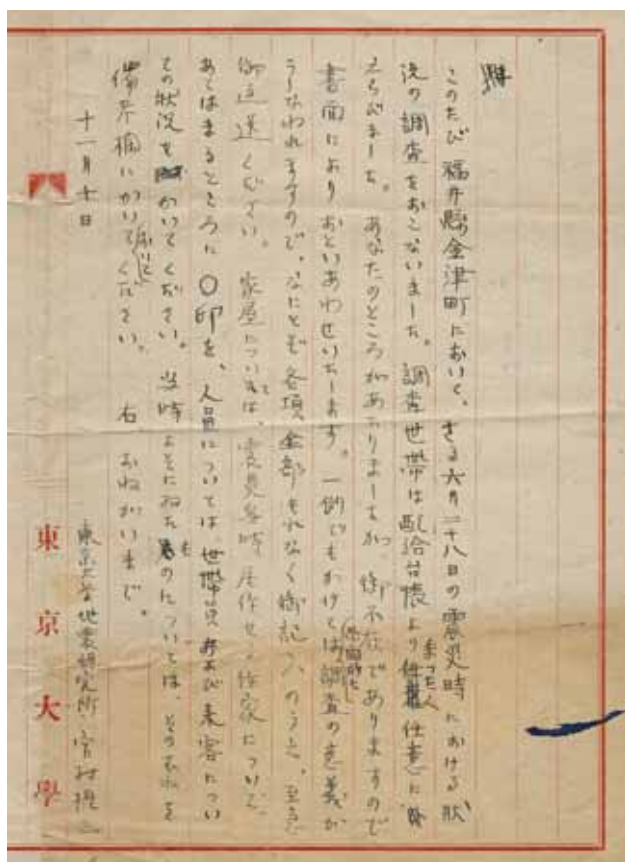 このたび福井縣金津町において、さる六月二十八日の震災時における狀
況の調査をおこないました。調査世帶は配給台帳より任意に
まったく
えらびました。あなたのところがあたりましたが、御不在でありますので
書面によりおといあわせいたします。一例でもかけては調査の意義が
うしなわれますので、なにとぞ各項全部もれなく御記入のうえ、至急
御返送ください。家屋については、震災当時居住せる住家について、
あてはまるところに〇印を、人員については世帶員および来客につい
ての狀況をかいてください。当時よそにねたものについては、そのむねを
備考欄にかいてください。右、おねがいまで。
十一月十日
東京大学地震研究所
東京大學